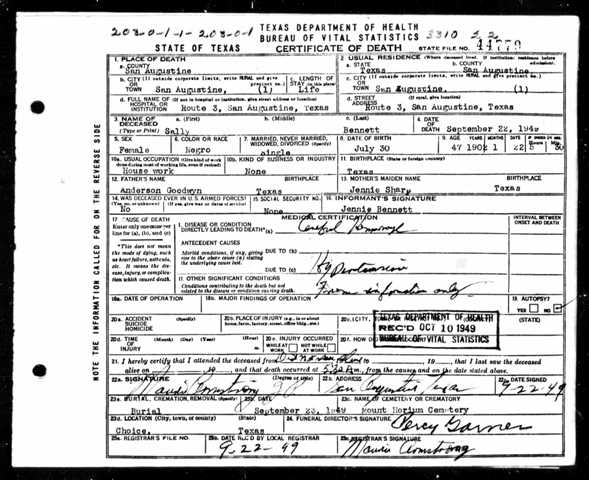 2030-1-1-203-0-1
TEXAS DEPARTMENT OF HEALTH
BUREAU OF VITAL STATISTICS
3310 22
STATE OF TEXAS CERTIFICATE OF DEATH STATE FILE NO. 44779
1. PLACE OF DEATH
a. COUNTY
San Augustine
2. USUAL RESIDENCE (Where deceased lived. If institution: residence before admission).
a. STATE Texas b. COUNTY San Augustine
b. CITY (If outside corporate limits, write RURAL and give precinct no.) OR TOWN San Augustine, (1)
c. LENGTH OF STAY (in this place) Life
c. CITY (If outside corporate limits, write RURAL and give precinct no.) OR TOWN San Augustine, (1)
d. FULL NAME OF (If not in hospital or institution, give street address or location) HOSPITAL OR INSTITUTION Route 3, San Augustine, Texas
d. STREET ADDRESS (If rural, give location) Route 3, San Augustine, Texas
3. NAME OF DECEASED (Type or Print)
a. (First) Sally
b. (Middle)
c. (Last) Bennett
4. DATE OF DEATH September 22, 1949
5. SEX Female
6. COLOR OR RACE Negro
7. MARRIED, NEVER MARRIED, WIDOWED, DIVORCED (Specify) single
8. DATE OF BIRTH July 30
47 1902 1 22 5 30
10a. USUAL OCCUPATION (Give kind of work done during most of working life, even if retired) House work
10b. KIND OF BUSINESS OR INDUSTRY None
11. BIRTHPLACE (State or foreign country) Texas
12. FATHER'S NAME BIRTHPLACE
Anderson Goodwyn Texas
13. MOTHER'S MAIDEN NAME BIRTHPLACE
Jennie Sharp Texas
14. WAS DECEASED EVER IN U.S. ARMED FORCES? No
15. SOCIAL SECURITY NO. None
16. INFORMANT'S SIGNATURE Jennie Bennett
17. CAUSE OF DEATH
Enter only one cause per line for (a), (b), and (c)
*This does not mean the mode of dying, such as heart failure, asthenia, etc. It means the disease, injury, or complication which caused death.
MEDICAL CERTIFICATION
INTERVAL BETWEEN ONSET AND DEATH
I. DISEASE OR CONDITION DIRECTLY LEADING TO DEATH*(a)
ANTECEDENT CAUSES
Morbid conditions, if any, giving rise to the above cause (a) stating the underlying cause last.
DUE TO (b)
DUE TO (c)
II. OTHER SIGNIFICANT CONDITIONS
Conditions contributing to the death but not related to the disease or condition causing death.
From information only
18a. DATE OF OPERATION
18b. MAJOR FINDINGS OF OPERATION
19. AUTOPSY? YES NO
20a. ACCIDENT SUICIDE HOMICIDE (Specify)
20b. PLACE OF INJURY (e.g., in or about home, farm, factory, street, office bldg., etc.)
(STATE)
20d. TIME OF INJURY (Month) (Day) (Year) (Hour)
20e. INJURY OCCURRED WHILE AT WORK NOT WHILE AT WORK
TEXAS DEPARTMENT OF HEALTH
REC'D OCT 10 1949
BUREAU OF VITAL STATISTICS
21. I hereby certify that I attended the deceased from to 19 , that I last saw the deceased
alive on 19 , and that death occurred at 5:30 P.m., from the causes and on the date stated above.
22a. SIGNATURE (Degree or title) Maudie Armstrong
22b. ADDRESS San Augustine Texas
22c. DATE SIGNED 9-22-49
23a. BURIAL, CREMATION, REMOVAL (Specify) Burial
23b. DATE September 23, 1949
23c. NAME OF CEMETERY OR CREMATORY Mount Horium Cemetery
23d. LOCATION (City, town, or county) (State)
Choice, Texas
24. FUNERAL DIRECTOR'S SIGNATURE Percy Garner
25a. REGISTRAR'S FILE NO.
25b. DATE REC'D BY LOCAL REGISTRAR 9-22-49
25c. REGISTRAR'S SIGNATURE Maudie Armstrong
NOTE THE INFORMATION CALLED FOR ON THE REVERSE SIDE